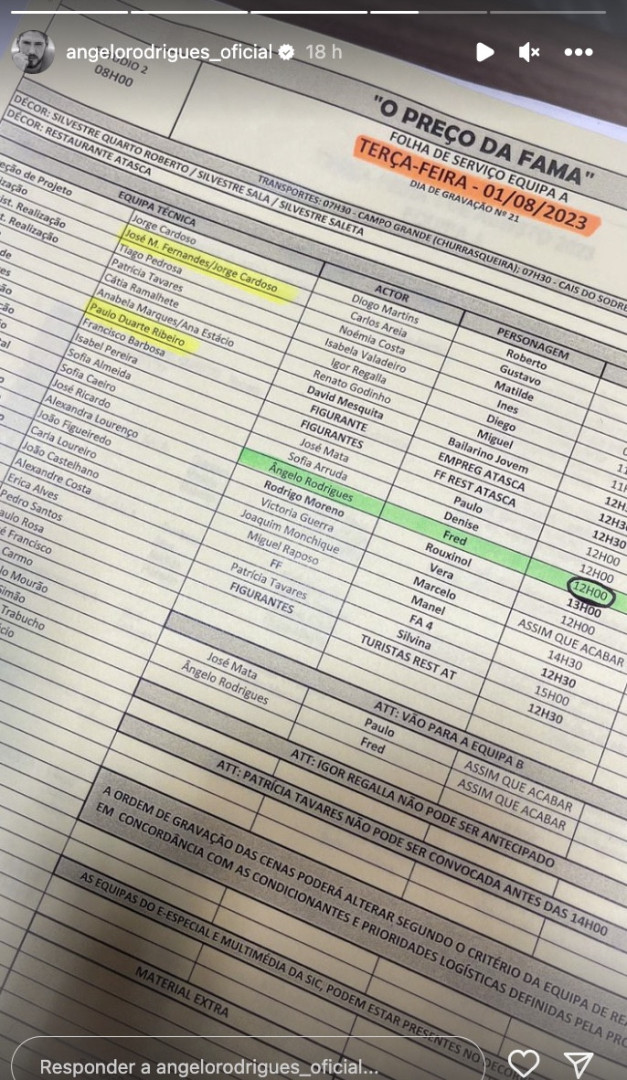 angelorodrigues_oficial 18 h
08H00
"O PREÇO DA FAMA"
FOLHA DE SERVIÇO EQUIPA A
TERÇA-FEIRA - 01/08/2023
DIA DE GRAVAÇÃO Nº 21
TRANSPORTES: 07H30 - CAMPO GRANDE (CHURRASQUEIRA); 07H30 - CAIS DO SODRÉ
DÉCOR: SILVESTRE QUARTO ROBERTO / SILVESTRE SALA / SILVESTRE SALETA
DÉCOR: RESTAURANTE ATASCA
EQUIPA TÉCNICA
Jorge Cardoso
José M. Fernandes/Jorge Cardoso
Tiago Pedrosa
Patrícia Tavares
Cátia Ramalhete
Anabela Marques/Ana Estácio
Paulo Duarte Ribeiro
Francisco Barbosa
Isabel Pereira
Sofia Almeida
Sofia Caeiro
José Ricardo
Alexandra Lourenço
João Figueiredo
Carla Loureiro
João Castelhano
Alexandre Costa
Erica Alves
Pedro Santos
Paulo Rosa
Francisco
Carmo
Mourão
Simão
Trabucho
ACTOR PERSONAGEM
Diogo Martins Roberto
Carlos Areia Gustavo
Noémia Costa Matilde
Isabela Valadeiro Ines
Igor Regalla Diego
Renato Godinho Miguel
David Mesquita Bailarino Jovem
FIGURANTE EMPREG ATASCA
FIGURANTES FF REST ATASCA
José Mata Paulo 12H00
Sofia Arruda Denise 12H00
Ângelo Rodrigues Fred 12H00
Rodrigo Moreno Rouxinol 13H00
Victoria Guerra Vera 12H00
Joaquim Monchique Marcelo ASSIM QUE ACABAR
Miguel Raposo Manel 14H30
FF FA 4 12H30
Patrícia Tavares Silvina 15H00
FIGURANTES TURISTAS REST AT 12H30
ATT: VÃO PARA A EQUIPA B
José Mata Paulo ASSIM QUE ACABAR
Ângelo Rodrigues Fred ASSIM QUE ACABAR
ATT: IGOR REGALLA NÃO PODE SER ANTECIPADO
ATT: PATRÍCIA TAVARES NÃO PODE SER CONVOCADA ANTES DAS 14H00
A ORDEM DE GRAVAÇÃO DAS CENAS PODERÁ ALTERAR SEGUNDO O CRITÉRIO DA EQUIPA DE
EM CONCORDÂNCIA COM AS CONDICIONANTES E PRIORIDADES LOGÍSTICAS DEFINIDAS PELA
AS EQUIPAS DO E-ESPECIAL E MULTIMÉDIA DA SIC, PODEM ESTAR PRESENTES NO DECOR
MATERIAL EXTRA
Responder a angelorodrigues_oficial...